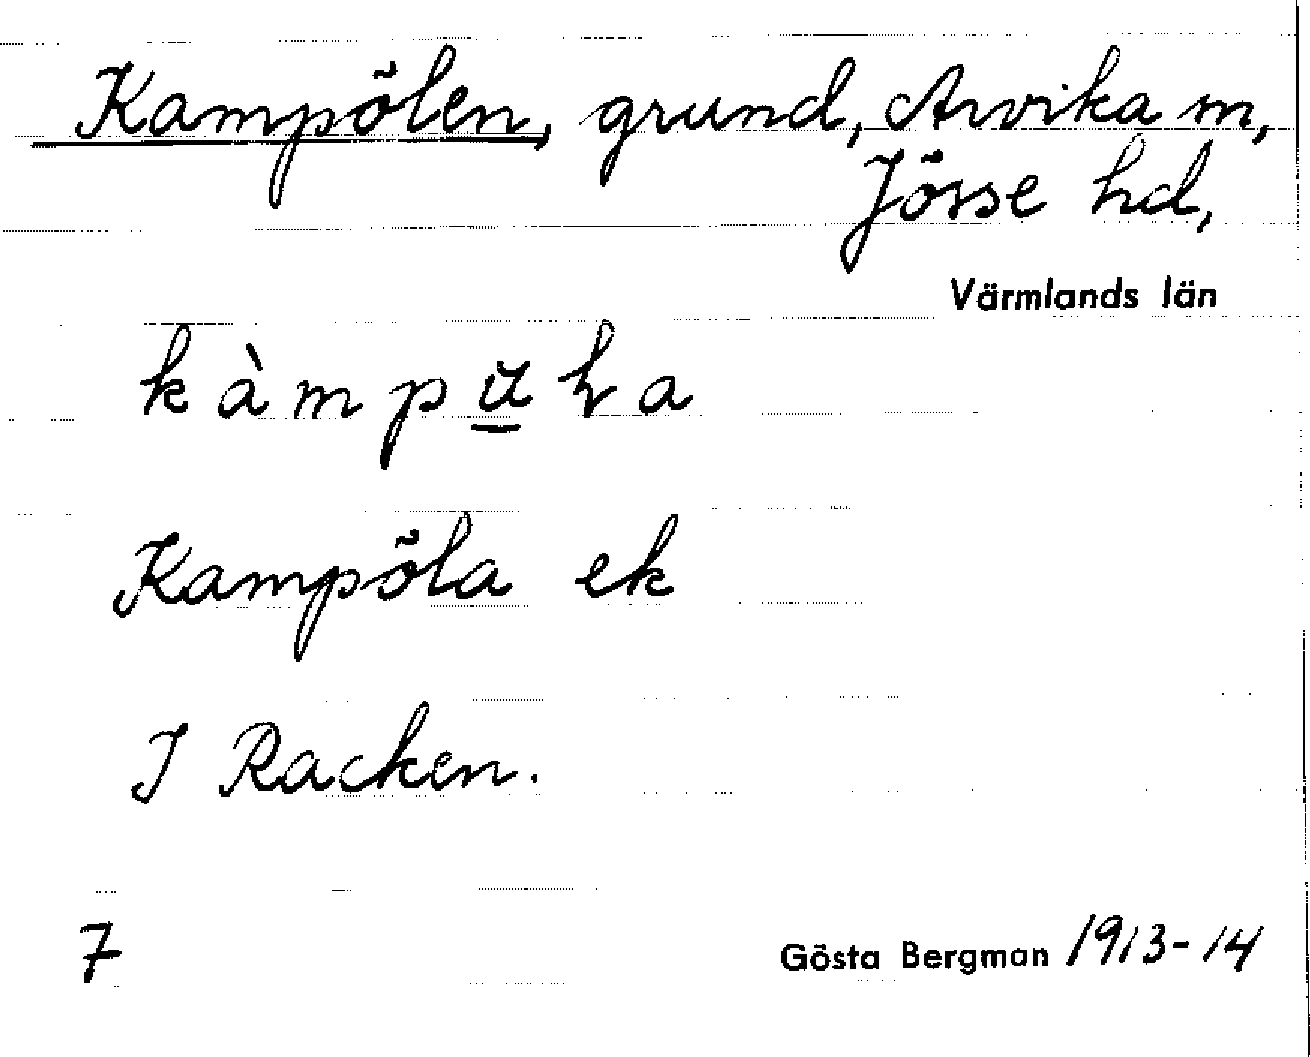 Kampölen, grund, Arvika m,
Jösse hd,
Värmlands län
Kampöla ek
I Racken.
7
Gösta Bergman 1913-14